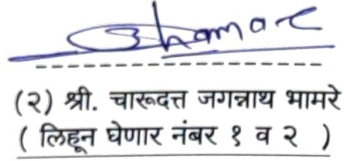 Bhamare
(२) श्री. चारूदत्त जगन्नाथ भामरे
( लिहून घेणार नंबर १ व २ )